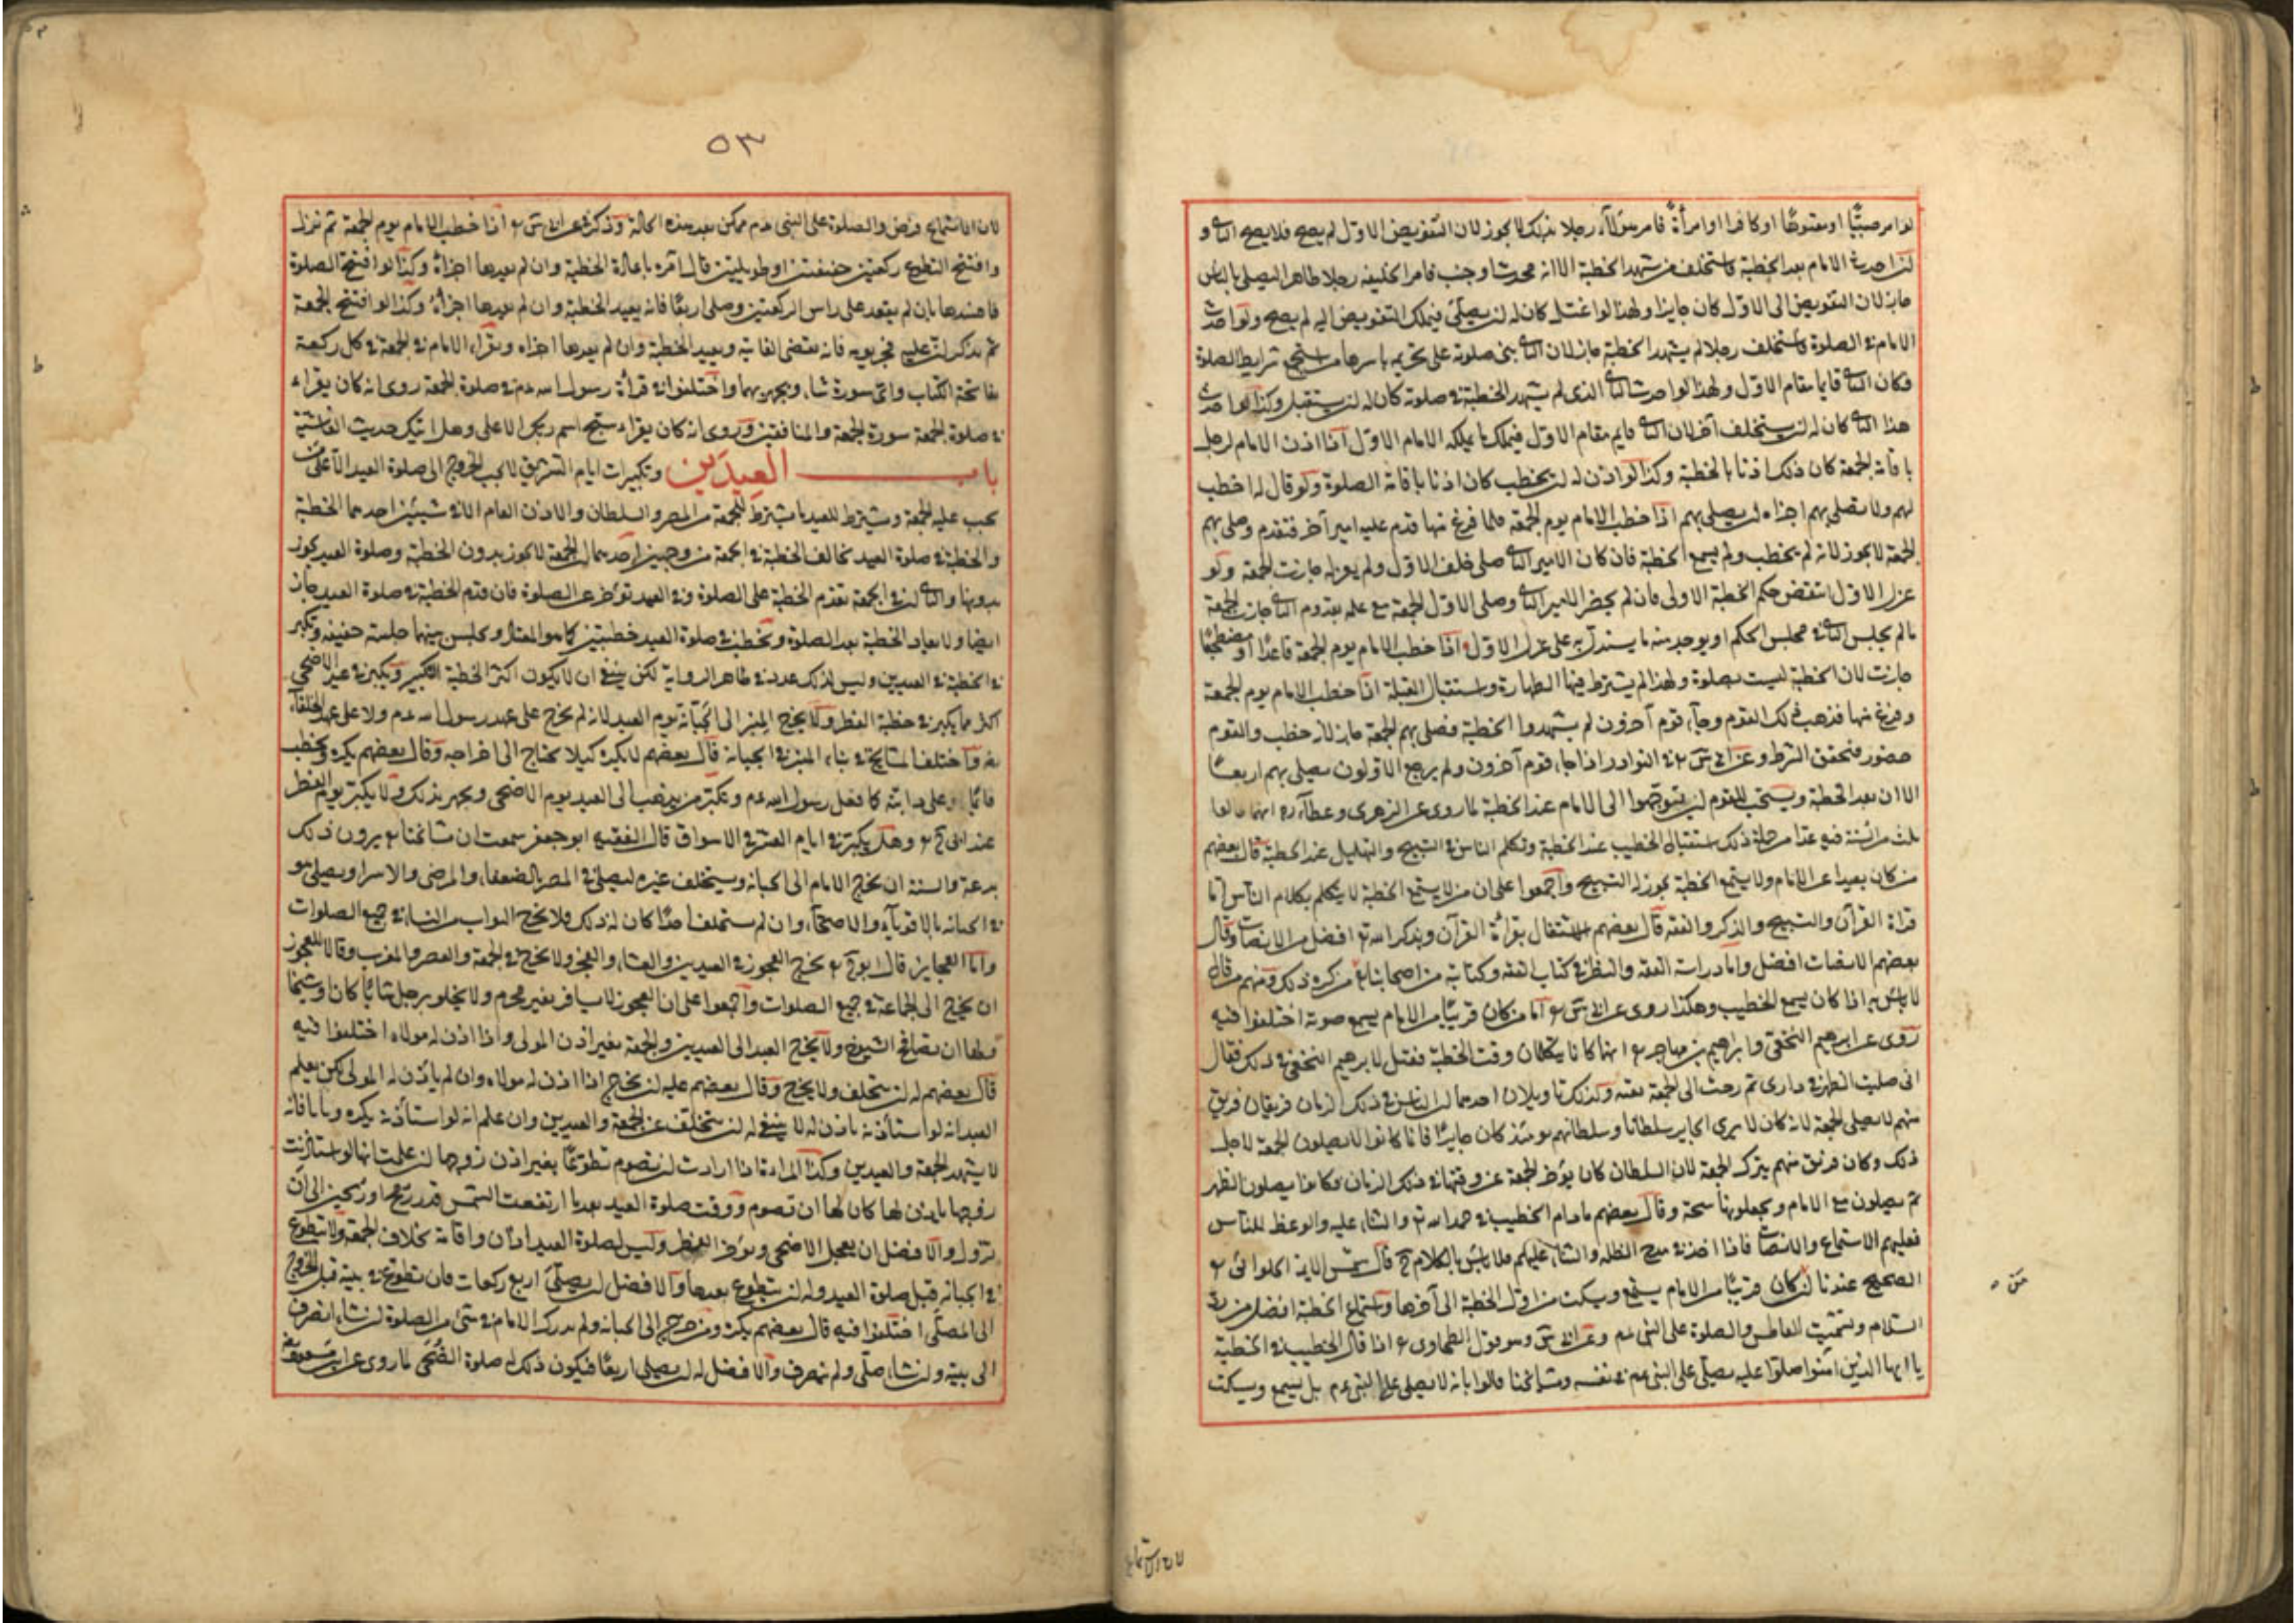 لو امر صبيًّا او معتوهًا او كافرا او امرأةً فامر هؤلاء رجلا بذلك لا يجوز لان التفويض الاول لم يصح فلا يصح الثانى و
احدث الامام بعد الخطبة فاستخلف من شهد الخطبة الا انه محدث او جنب فامر الخليفه رجلا طاهرا ليصلى بالناس
جاز لان التفويض الى الاول كان جايزا ولهذا لو اغتسل كان له ان يصلى فيملك التفويض اليه لم يصح ولو احدث
الامام فى الصلوة فاستخلف رجلا لم يشهد الخطبة جاز لان الثانى بنى صلوته على تحريمه باسرها من استجمع شرايط الصلوة
فكان الثانى قايما مقام الاول ولهذا لو احدث الثانى الذى لم يشهد الخطبة فى صلوته كان له ان يستقبل وكذا لو احدث
هذا الثانى كان له ان يستخلف آخر لان الثانى قايم مقام الاول فيملك ما يملكه الامام الاول اذا اذن الامام لرجل
باقامة الجمعة كان ذلك اذنا بالخطبة وكذا لو اذن له ان يخطب كان اذنا باقامة الصلوة ولو قال له اخطب
لهم ولا تصلى بهم اجزاه ان يصلى بهم اذا خطب الامام يوم الجمعة فلما فرغ منها قدم عليه امير آخر فتقدم وصلى بهم
الجمعة لا يجوز لانه لم يخطب ولم يسمع الخطبة فان كان الامير الثانى صلى خلف الاول ولم يعزله جازت الجمعة ولو
عزل الاول انتقض حكم الخطبة الاولى فان لم يحضر الامير الثانى وصلى الاول الجمعة مع علمه بقدوم الثانى جازت الجمعة
ما لم يجلس الثانى مجلس الحكم او يوجد منه ما يستدل به على عزل الاول اذا خطب الامام يوم الجمعة قاعدًا او مضطجعًا
جازت لان الخطبة ليست بصلوة ولهذا لم يشترط فيها الطهارة واستقبال القبلة اذا خطب الامام يوم الجمعة
وفرغ منها فذهب ذلك القوم وجآء قوم آخرون لم يشهدوا الخطبة فصلى بهم الجمعة جاز لانه خطب والقوم
حضور فتحقق الشرط وعن ابى س فى النوادر اذا جاء قوم آخرون ولم يرجع الاولون يصلى بهم اربعًا
الا ان بعد الخطبة ويستحب للقوم ان يتوجهوا الى الامام عند الخطبة لما روى عن الزهرى وعطآء انهما قالا
ثلث من السنة استقبال الخطيب عند الخطبة وتكلم الناس فى التسبيح والتهليل عند الخطبة قال بعضهم
من كان بعيدا عن الامام ولا يسمع الخطبة يجوز له التسبيح واجمعوا على ان من لا يسمع الخطبة لا يتكلم بكلام الناس اما
قراة القرآن والتسبيح والذكر والفقه قال بعضهم الاشتغال بقرأة القرآن وبذكر الله تع افضل من الانصات وقال
بعضهم الانصات افضل واما دراسة الفقه والنظر فى كتاب الفقه وكتابته من اصحابنا من كره ذلك ومنهم من قال
لا باس به اذا كان يسمع الخطيب وهكذا روى عن ابى س اما من كان قريبًا من الامام يسمع صوته اختلفوا فيه
روى عن ابرهيم النخعى وابرهيم بن مهاجر انهما كانا يتكلمان وقت الخطبة فقيل لابرهيم النخعى فى ذلك فقال
انى صليت الظهر فى دارى ثم رحت الى الجمعة تقية ولذلك تاويلان احدهما ان الناس فى ذلك الزمان فريقان فريق
منهم لا يصلى الجمعة لانه كان لا يرى الجاير سلطانا وسلطانهم يومئذ كان جايرًا فانما كانوا لا يصلون الجمعة لاجل
ذلك وكان فريق منهم يترك الجمعة لان السلطان كان يؤخر الجمعة عن وقتها فى ذلك الزمان فكانوا يصلون الظهر
ثم يصلون مع الامام ويجعلونها سبحة وقال بعضهم ما دام الخطيب فى حمد الله تع والثناء عليه والوعظ للناس
فعليهم الاستماع والانصات فاذا اخذ فى مدح الظلمه والثناء عليهم فلا باس بالكلام ح قال شمس الايمة الحلوائى
الصحيح عندنا ان كان قريبًا من الامام يستمع ويسكت من اول الخطبة الى آخرها واستماع الخطبة افضل من رد
السلام وتشميت العاطس والصلوة على النبى عم وعن ابى س وهو قول الطحاوى اذا قال الخطيب فى الخطبة
يا ايها الذين امنوا صلوا عليه يصلى على النبى عم فى نفسه ومشايخنا قالوا بانه لا يصلى على النبى عم بل يسمع ويسكت
لان الاستماع
٥٣
لان الاستماع فرض والصلوة على النبى عم ممكن بعد هذه الحالة وذكر عن ابى س اذا خطب الامام يوم الجمعة ثم نزل
وافتتح التطوع ركعتين خفيفتين او طويلتين قال آمره باعادة الخطبة وان لم يعدها اجزاهُ وكذا لو افتتح الصلوة
فافسدها بان لم يقعد على راس الركعتين وصلى اربعًا فانه يعيد الخطبة وان لم يعدها اجزأهُ وكذا لو افتتح الجمعة
ثم تذكر ان عليه فجر يومه فانه يقضى الفايتة ويعيد الخطبة وان لم يعدها اجزاه ويقرأ الامام فى الجمعة فى كل ركعة
بفاتحة الكتاب واى سورة شاء ويجهر بهما واختلفوا فى قرأة رسول الله عم فى صلوة الجمعة روى انه كان يقراء
فى صلوة الجمعة سورة الجمعة والمنافقين وروى انه كان يقراء سبح اسم ربك الاعلى وهل اتيك حديث الغاشية
باب العيدين وتكبيرات ايام التشريق لا يجب الخروج الى صلوة العيد الا على من
يجب عليه الجمعة ويشترط للعيد ما يشترط للجمعة من المصر والسلطان والاذن العام الا فى شيئين احدهما الخطبة
والخطبة فى صلوة العيد تخالف الخطبة فى الجمعة من وجهين احدهما ان الجمعة لا يجوز بدون الخطبة وصلوة العيد يجوز
بدونها والثانى ان فى الجمعة تقدم الخطبة على الصلوة وفى العيد تؤخر عن الصلوة فان قدم الخطبة فى صلوة العيد جاز
ايضا ولا يعاد الخطبة بعد الصلوة ويخطب فى صلوة العيد خطبتين كما هو المعتاد ويجلس بينهما جلسة خفيفه ويكبر
فى الخطبة فى العيدين وليس لذلك عدد فى ظاهر الرواية لكن ينبغى ان لا يكون اكثر الخطبة التكبير ويكبر فى عيد الاضحى
اكثر مما يكبر فى خطبة الفطر ولا يخرج المنبر الى الجبانة يوم العيد لانه لم يخرج على عهد رسول الله عم ولا على عهد الخلفآء
واختلف المشايخ فى بناء المنبر فى الجبانه قال بعضهم لا يكره كيلا يحتاج الى اخراجه وقال بعضهم يكره ويخطب
قائمًا او على دابته كما فعل رسول الله عم ويكبر من يذهب الى العيد يوم الاضحى ويجهر بذلك ولا يكبر يوم الفطر
عند ابى ح وهل يكبر فى ايام العشر فى الاسواق قال الفقيه ابو جعفر سمعت ان مشايخنا يرون ذلك
بدعة والسنة ان يخرج الامام الى الجبانه ويستخلف غيره ليصلى فى المصر بالضعفاء والمرضى والاسرا ويصلى هو
فى الجبانه بالاقويآء والاصحآء وان لم يستخلف احدًا كان له ذلك ولا يخرج الشواب من النساء فى جميع الصلوات
واما العجايز قال ابو ح يخرج العجوز فى العيدين والعشاء والفجر ولا يخرج فى الجمعة والعصر والمغرب وقالا للعجوز
ان يخرج الى الجماعة فى جميع الصلوات واجمعوا على ان العجوز لا يسافر بغير محرم ولا يخلو برجل شابًا كان او شيخًا
ولها ان تصافح الشيوخ ولا يخرج العبد الى العيدين والجمعة بغير اذن المولى واذا اذن له مولاه اختلفوا فيه
قال بعضهم له ان يتخلف ولا يخرج وقال بعضهم عليه ان يخرج اذا اذن له مولاه وان لم ياذن له المولى لكن يعلم
العبد انه لو استأذنه ياذن له لا ينبغى له ان يتخلف عن الجمعة والعيدين وان علم انه لو استأذنه يكره وياباه فانه
لا يشهد الجمعة والعيدين وكذا المرأة اذا ارادت ان تصوم تطوعًا بغير اذن زوجها ان علمت انها لو استاذنت
زوجها ياذن لها كان لها ان تصوم ووقت صلوة العيد بعد ما ارتفعت الشمس قدر رمح او رمحين الى ان
تزول والافضل ان يعجل الاضحى ويؤخر الفطر وليس لصلوة العيد اذان واقامة بخلاف الجمعة ولا يتطوع
فى الجبانه قبل صلوة العيد وله ان يتطوع بعدها والافضل ان يصلى اربع ركعات فان تطوع فى بيته قبل الخروج
الى المصلى اختلفوا فيه قال بعضهم يكره ومن خرج الى الجبانه ولم يدرك الامام فى شئ من الصلوة ان شاء انصرف
الى بيته وان شاء صلى ولم ينصرف والافضل له ان يصلى اربعًا فيكون ذلك له صلوة الضحى لما روى عن ابن مسعود